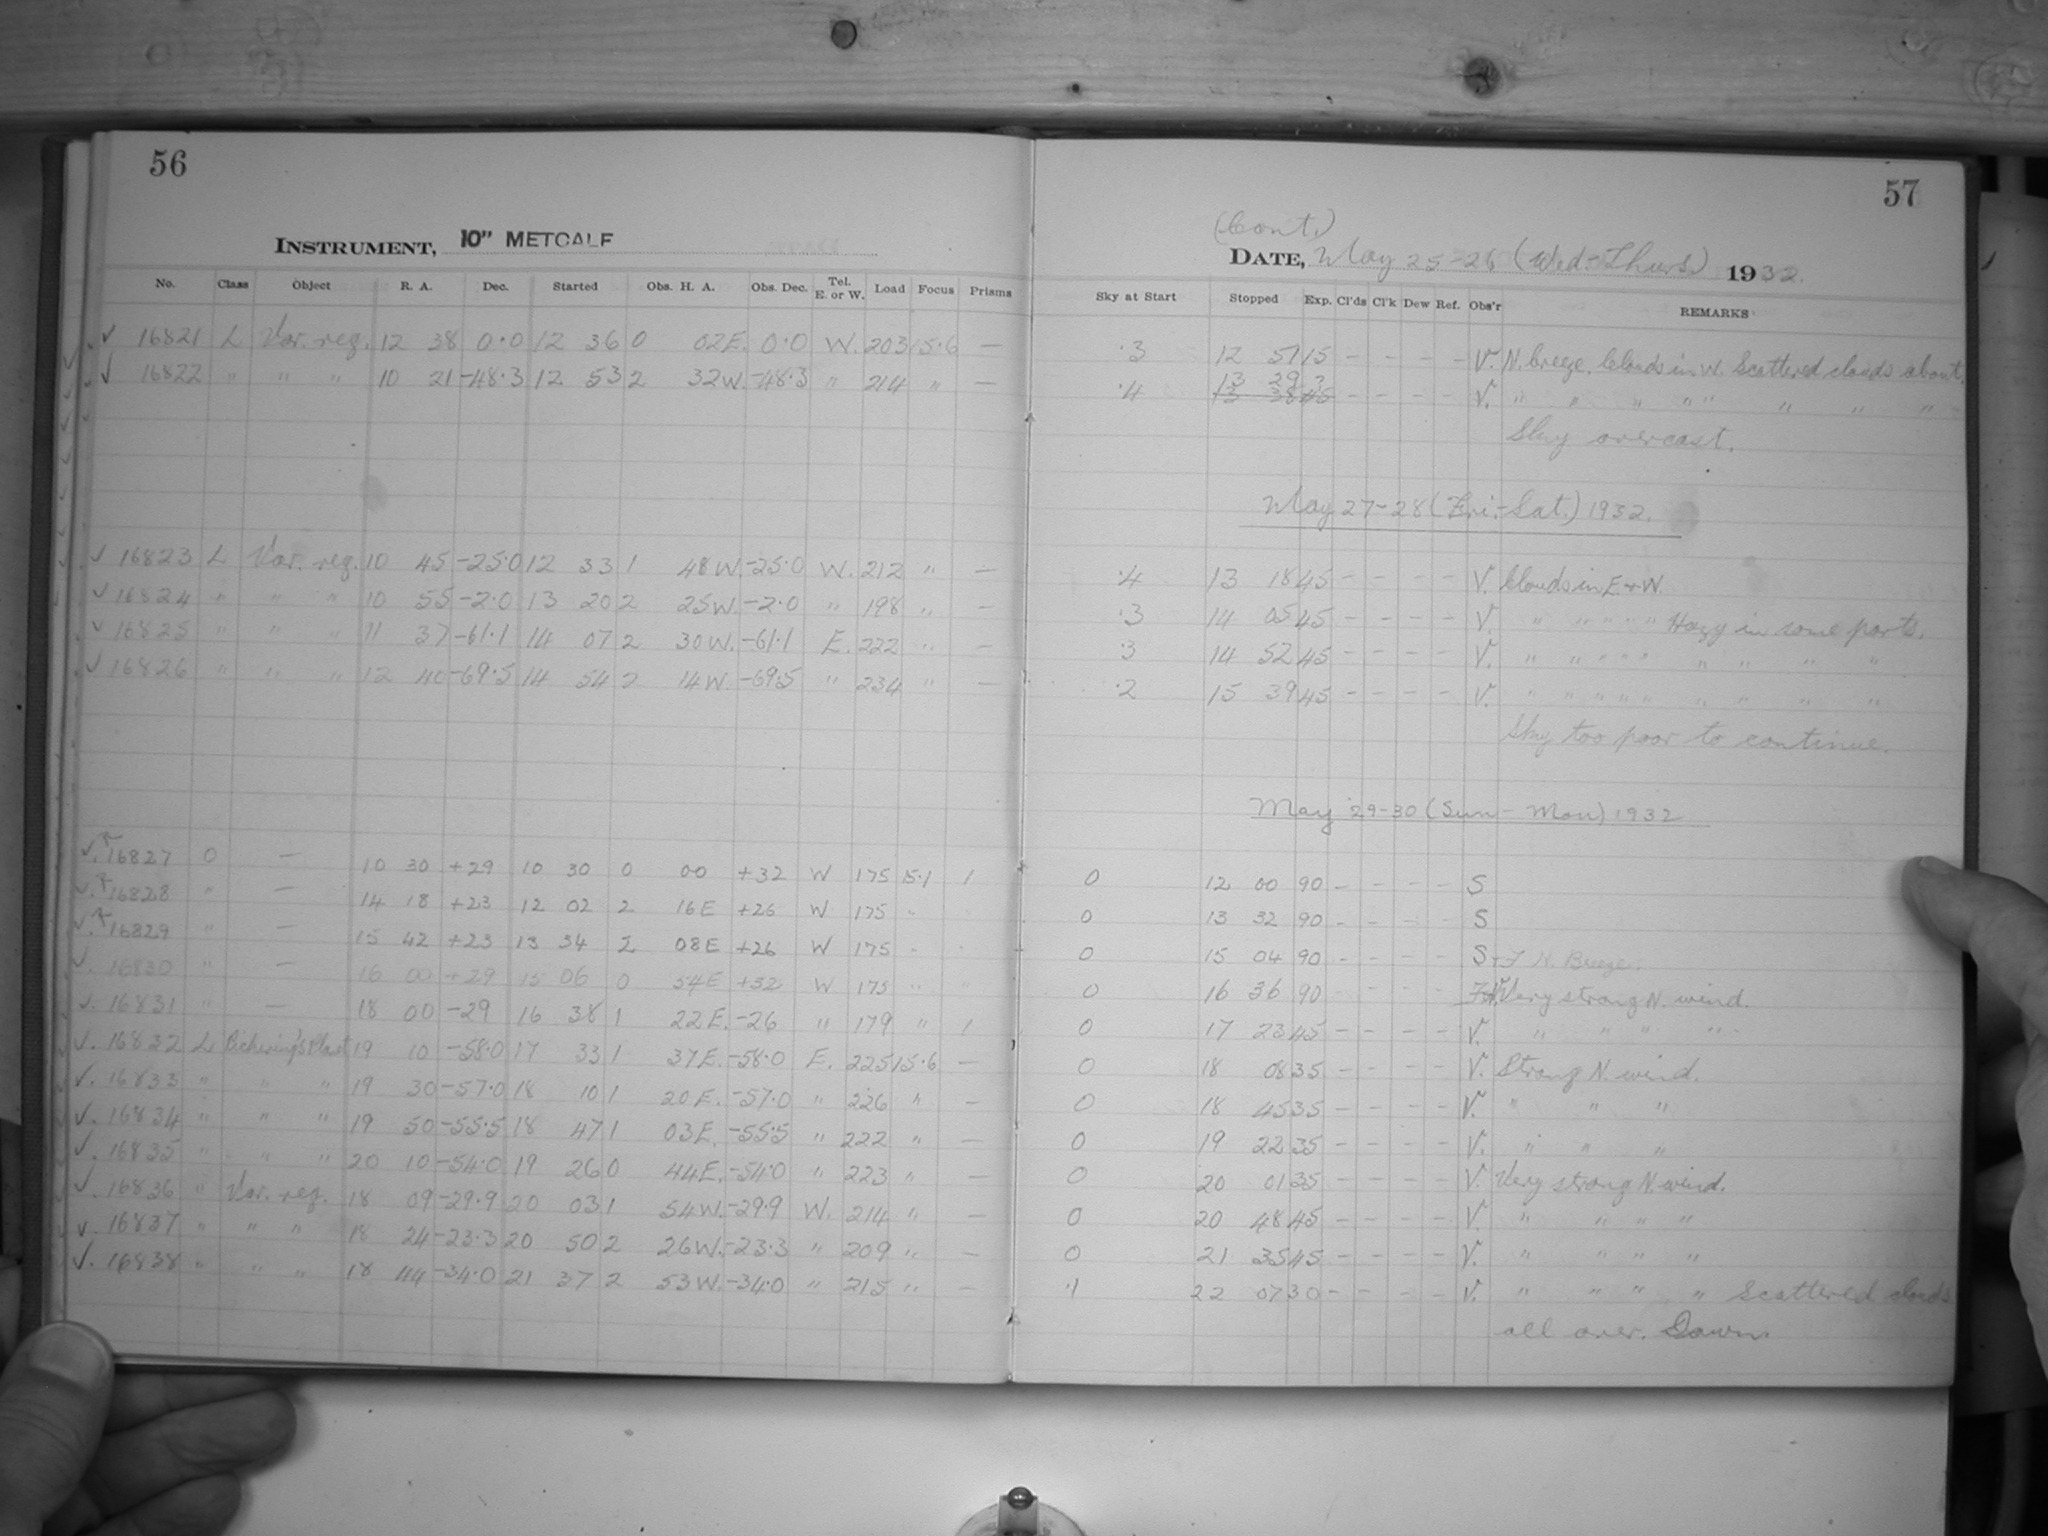 56
INSTRUMENT, 10" METCALF
No. Class Object R. A. Dec. Started Obs. H. A. Obs. Dec. Tel. E. or W. Load Focus Prisms
✓ 16821 L Var. reg. 12 38 0·0 12 36 0 02E. 0·0 W. 203 15·6 —
✓ 16822 " " " 10 21 -48·3 12 53 2 32W. -48·3 " 214 " —
✓ 16823 L Var. reg. 10 45 -25·0 12 33 1 48W. -25·0 W. 212 " —
✓ 16824 " " " 10 55 -2·0 13 20 2 25W. -2·0 " 198 " —
✓ 16825 " " " 11 37 -61·1 14 07 2 30W. -61·1 E. 222 " —
✓ 16826 " " " 12 40 -69·5 14 54 2 14W. -69·5 " 234 " —
✓. 16827 O — 10 30 +29 10 30 0 00 +32 W 175 15·1 1
✓. 16828 " — 14 18 +23 12 02 2 16E +26 W 175 "
✓. 16829 " — 15 42 +23 13 34 2 08E +26 W 175 "
✓. 16830 " — 16 00 +29 15 06 0 54E +32 W 175 " "
✓. 16831 " — 18 00 -29 16 38 1 22E. -26 " 179 " 1
✓. 16832 L Pickering's Plact 19 10 -58·0 17 33 1 37E. -58·0 E. 225 15·6 —
✓. 16833 " " " 19 30 -57·0 18 10 1 20E. -57·0 " 226 " —
✓. 16834 " " " 19 50 -55·5 18 47 1 03E. -55·5 " 222 " —
✓. 16835 " " " 20 10 -54·0 19 26 0 44E. -54·0 " 223 " —
✓. 16836 " Var. reg. 18 09 -29·9 20 03 1 54W. -29·9 W. 214 " —
✓. 16837 " " " 18 24 -23·3 20 50 2 26W. -23·3 " 209 " —
✓. 16838 " " " 18 44 -34·0 21 37 2 53W. -34·0 " 215 " —
57
(Cont.)
DATE, May 25-26 (Wed-Thurs) 1932.
Sky at Start Stopped Exp. Cl'ds Cl'k Dew Ref. Obs'r REMARKS
·3 12 51 15 - - - - V. N. breeze. Clouds in W. Scattered clouds about.
13 29 ?
·4 13 38 45 - - - - V. " " " " " " " "
Sky overcast.
May 27-28 (Fri.-Sat.) 1932.
·4 13 18 45 - - - - V. Clouds in E + W.
·3 14 05 45 - - - - V. " " " " " Hazy in some parts.
·3 14 52 45 - - - - V. " " " " " " " " "
·2 15 39 45 - - - - V. " " " " " " " " "
Sky too poor to continue.
May 29-30 (Sun - Mon) 1932
0 12 00 90 - - - - S
0 13 32 90 - - - - S
0 15 04 90 - - - - S+J N. Breeze.
0 16 36 90 - - - - Very strong N. wind.
0 17 23 45 - - - - V. " " " "
0 18 08 35 - - - - V. Strong N. wind.
0 18 45 35 - - - - V. " " "
0 19 22 35 - - - - V. " " "
0 20 01 35 - - - - V. Very strong N. wind.
0 20 48 45 - - - - V. " " " "
0 21 35 45 - - - - V. " " " "
·1 22 07 30 - - - - V. " " " " Scattered clouds
all over. Dawn.